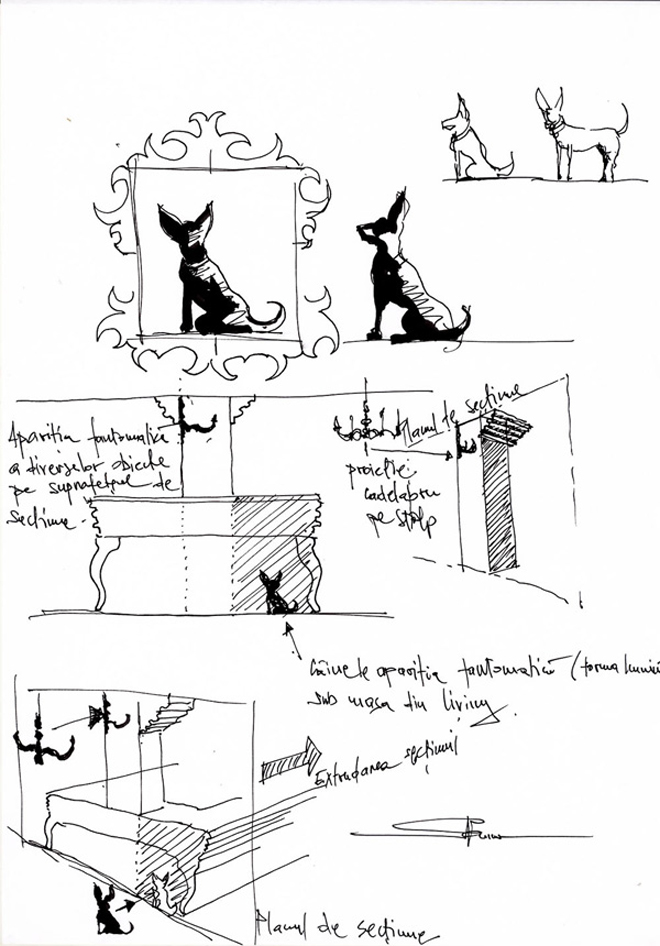 Apariția fantomatică
a diverselor obiecte
pe suprafețele de
secțiune.
Planul de secțiune
proiecție
cadelabru
pe stâlp
Câinele apariția fantomatică (forma luminii
sub masa din living
Extrudarea secțiunii
Planul de secțiune